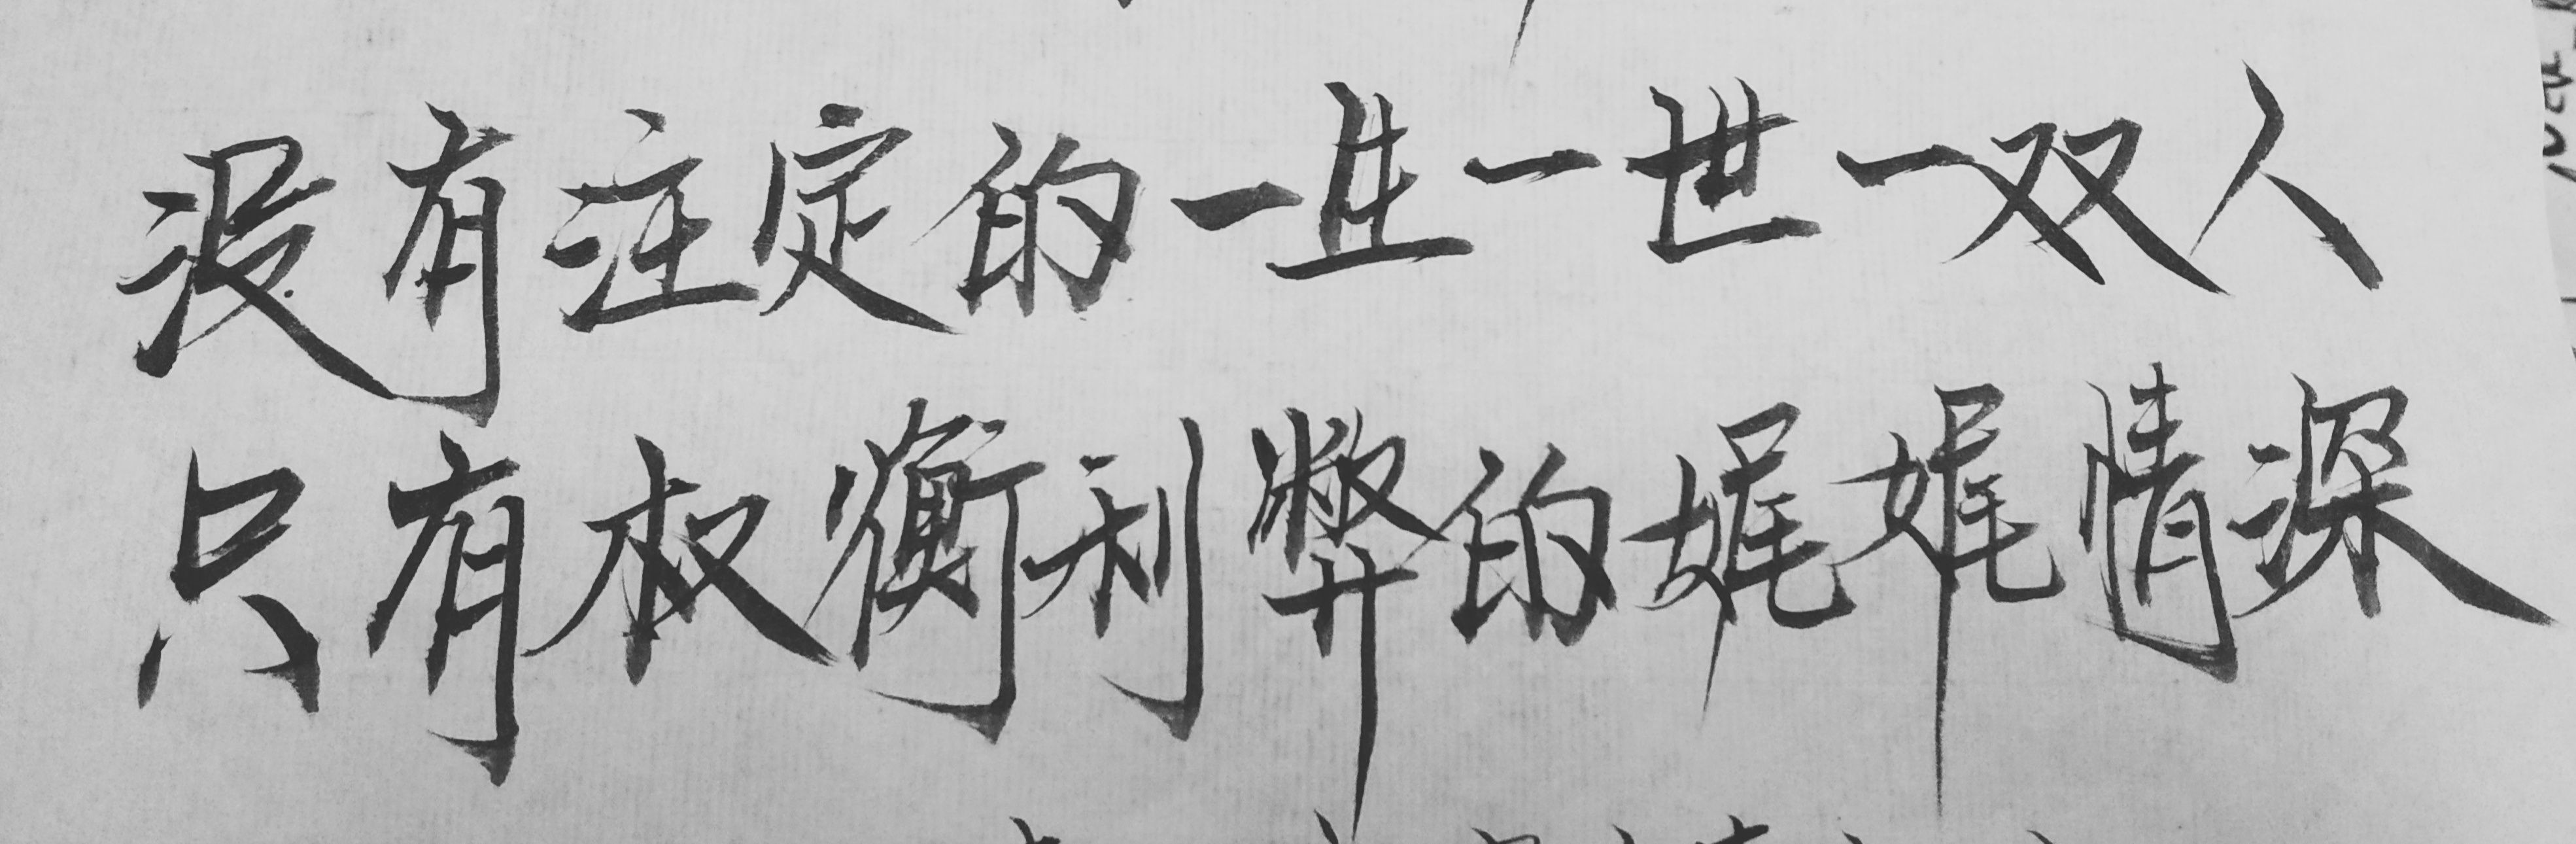 没有注定的一生一世一双人
只有权衡利弊的娓娓情深